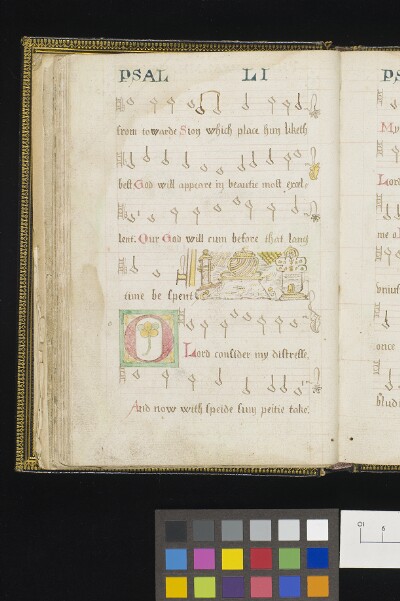 PSAL LI
from towarde Sion which place him liketh
best God will appeare in beautie most exel-
lent. Our God will cum before that lang
time be spent
O Lord consider my distresse,
And now with speide sum petie take.
PS
My
Lord
me
once
blud